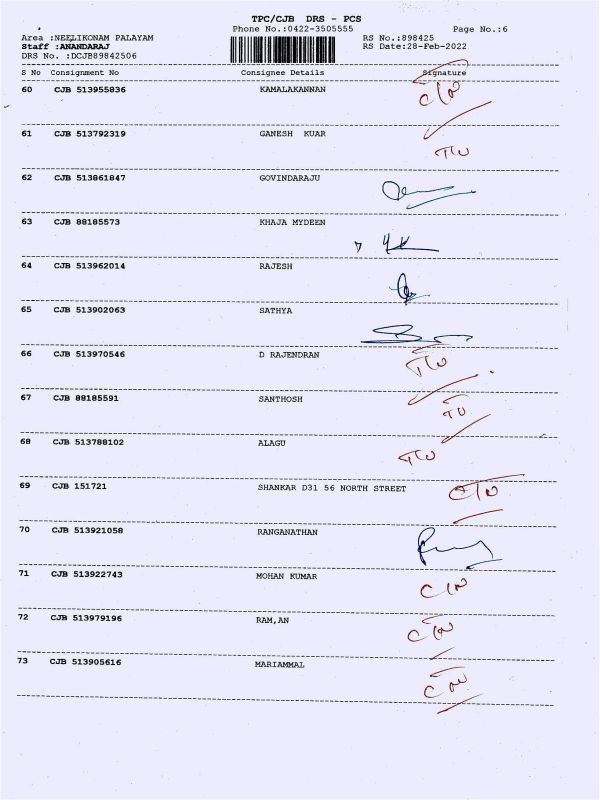 TPC/CJB DRS - PCS
Phone No.:0422-3505555 Page No.:6
Area :NEELIKONAM PALAYAM RS No.:898425
Staff :ANANDARAJ RS Date:28-Feb-2022
DRS No. :DCJB89842506
S No Consignment No Consignee Details Signature
60 CJB 513955836 KAMALAKANNAN
61 CJB 513792319 GANESH KUAR
62 CJB 513861847 GOVINDARAJU
63 CJB 88185573 KHAJA MYDEEN
64 CJB 513962014 RAJESH
65 CJB 513902063 SATHYA
66 CJB 513970546 D RAJENDRAN
67 CJB 88185591 SANTHOSH
68 CJB 513788102 ALAGU
69 CJB 151721 SHANKAR D31 56 NORTH STREET
70 CJB 513921058 RANGANATHAN
71 CJB 513922743 MOHAN KUMAR
72 CJB 513979196 RAM,AN
73 CJB 513905616 MARIAMMAL